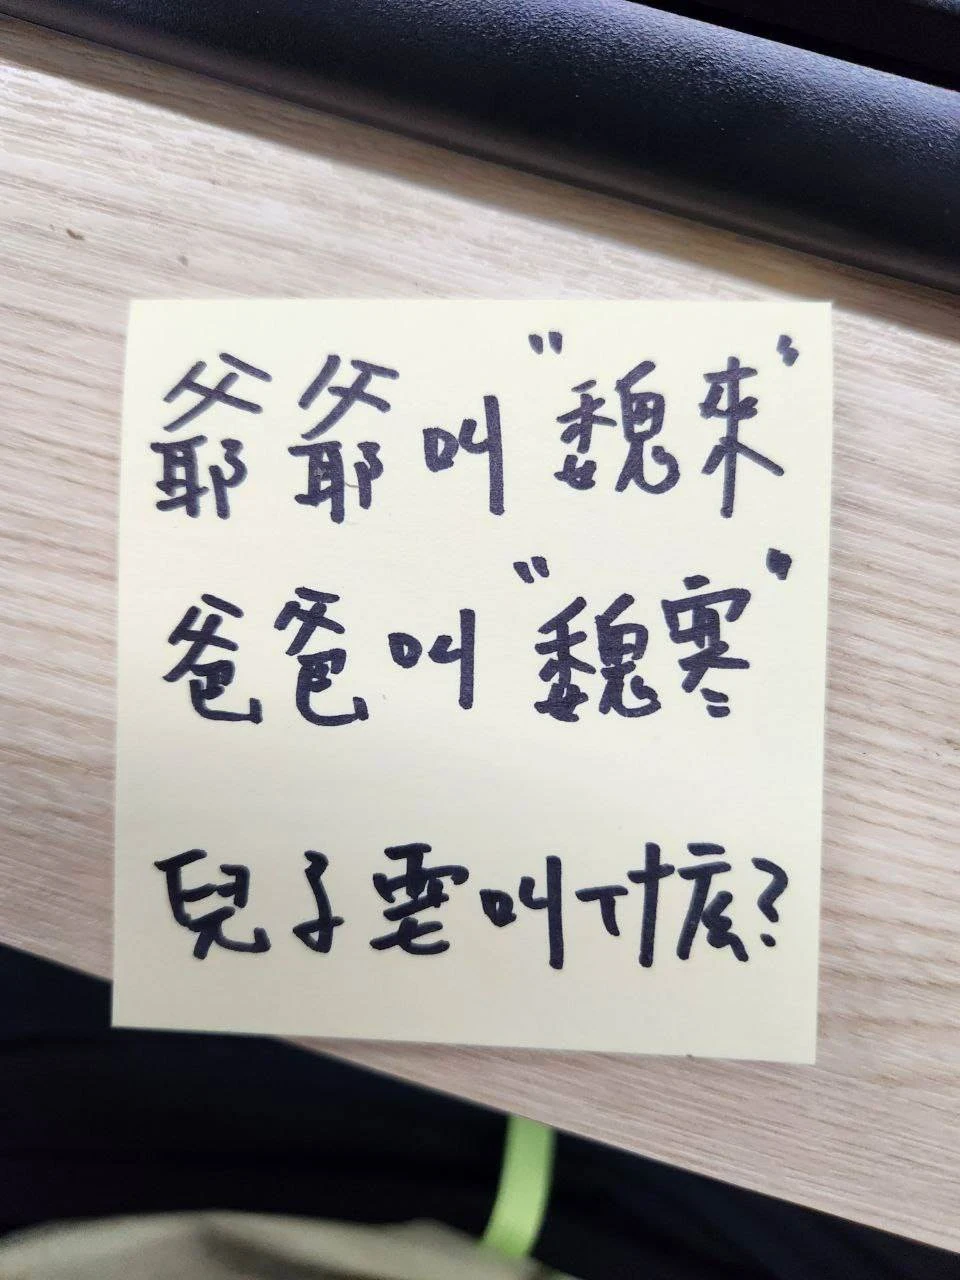 爺爺叫"魏來"
爸爸叫"魏寒"
兒子要叫什底?